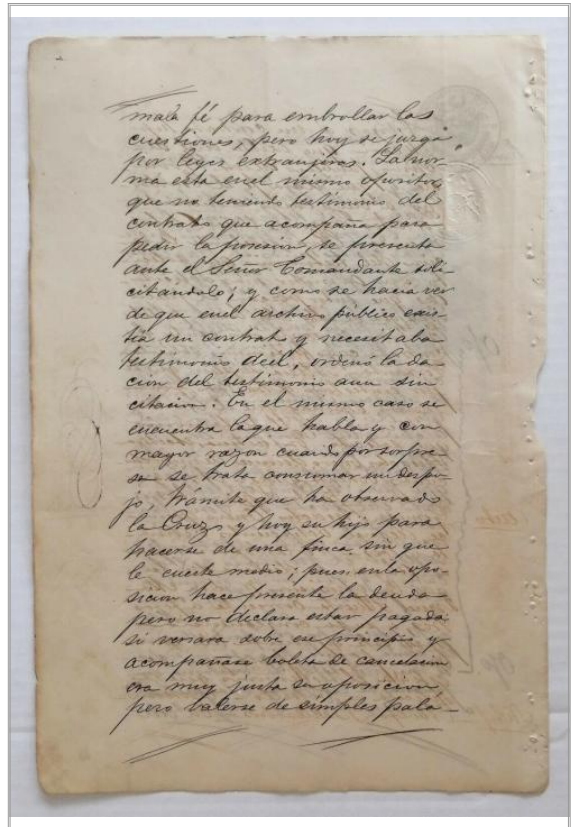 mala fé para embrollar las
cuestiones, pero hoy se juzga
por leyes extranjeras. La nor
ma esta en el mismo opositor,
que no teniendo testimonio del
contrato que acompaña para
pedir la posesion, se presenta
ante el Señor Comandante soli-
citandolo; y como se hacia ver
de que en el archivo público exis
tia un contrato y necesitaba
testimonio de el, ordenó la da
cion del testimonio aun sin
citacion. En el mismo caso se
encuentra la que habla y con
mayor razon cuando por sorpre
sa se trata consumar un despo
jo, tramite que ha observado
la Cruz y hoy su hijo para
hacerse de una finca sin que
le cueste medio; pues en la opo-
sicion hace presente la deuda
pero no declara estar pagada
si versara sobre ese principio y
acompañase boleta de cancelacion
era muy justa su oposicion
pero valerse de simples pala-